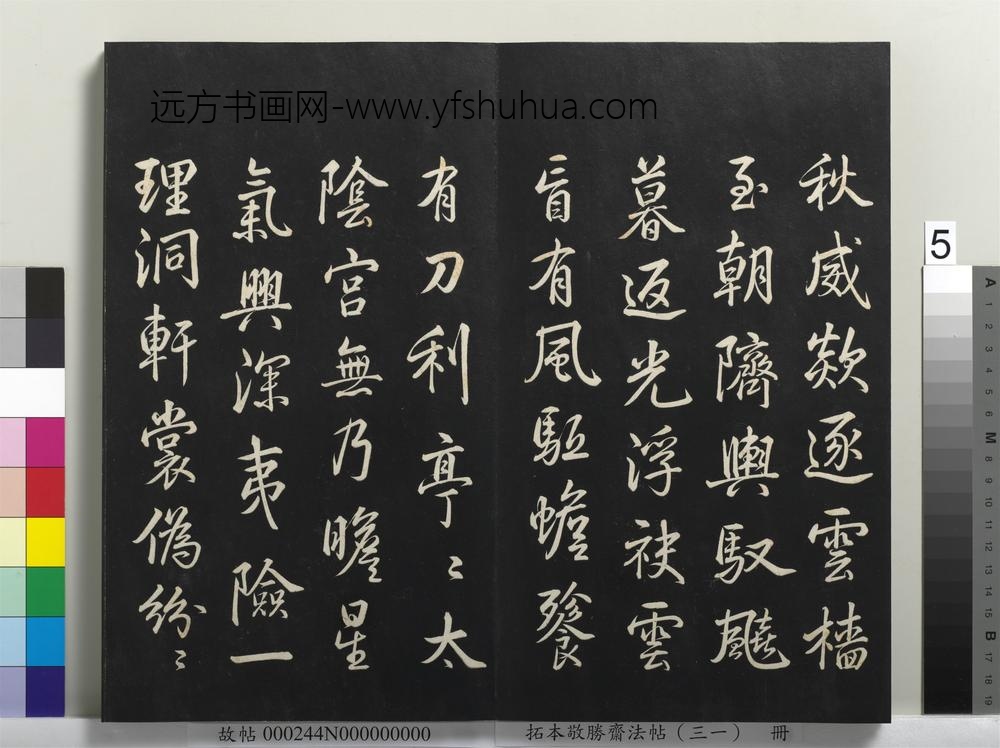 远方书画网-www.yfshuhua.com
秋威欻逐雲檣
至朝隮輿馭飇
暮返光浮袂雲
盲有風駈蟾餮
有刀利亭〻太
陰宮無乃瞻星
氣興深夷險一
理洞軒裳偽紛〻
5
A 1 2 3 4 5 6 M 8 9 10 11 12 13 14 15 B 17 18 19
拓本敬勝齋法帖（三一） 冊
故帖 000244N000000000